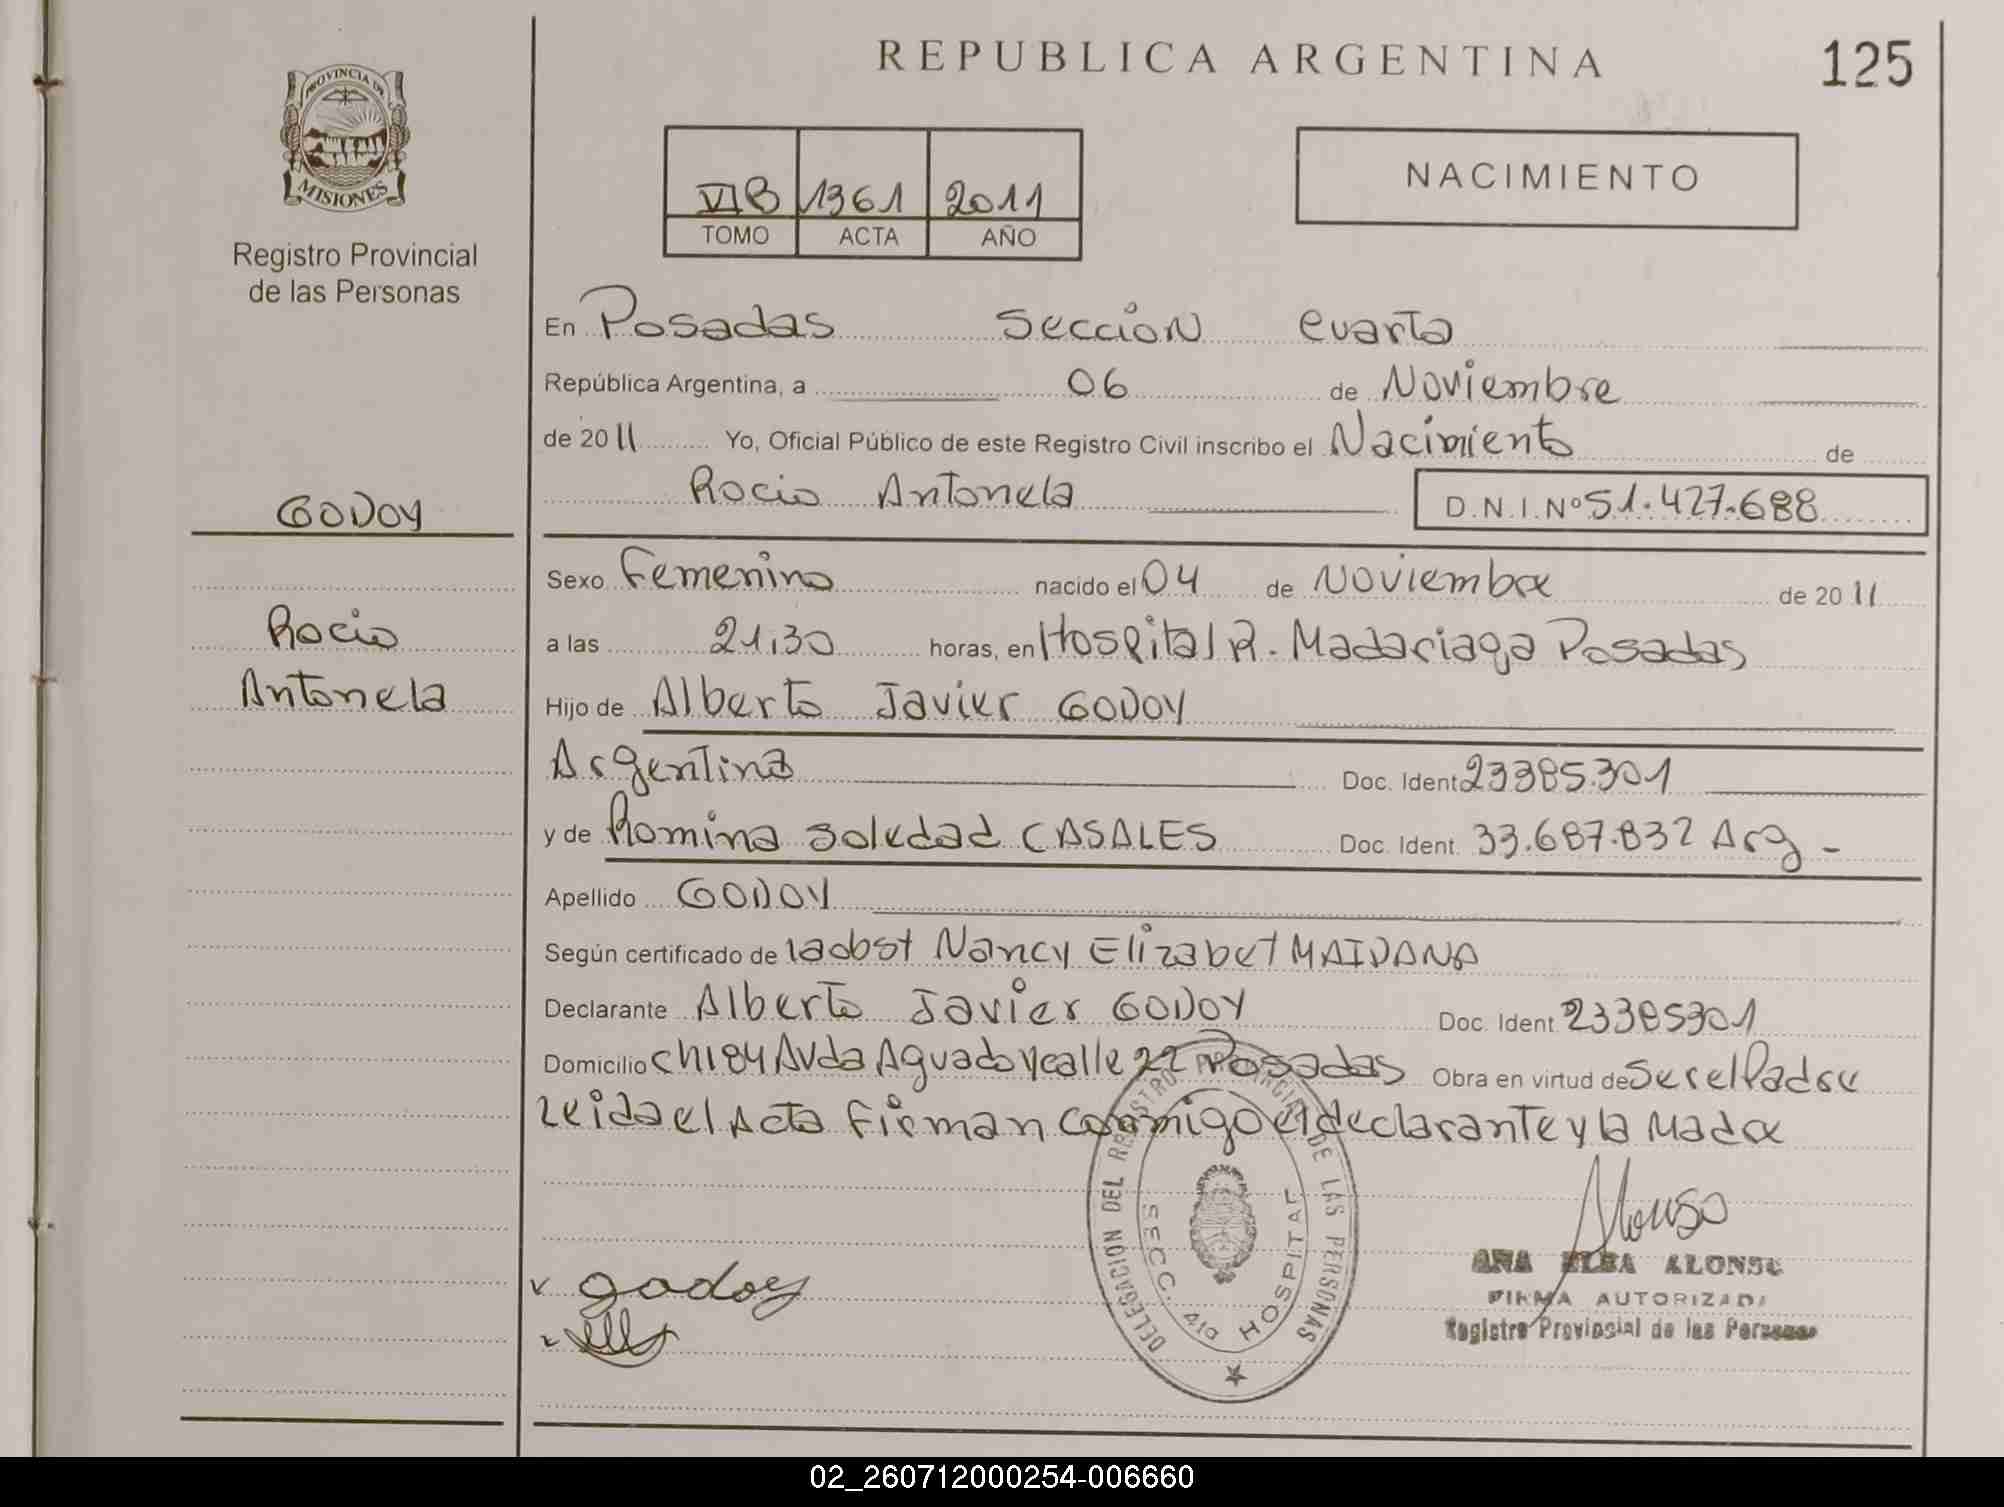 REPUBLICA ARGENTINA
125
PROVINCIA DE
MISIONES
Registro Provincial
de las Personas
VIB 1361 2011
TOMO ACTA AÑO
NACIMIENTO
En Posadas Seccion Cuarta
República Argentina, a 06 de Noviembre
de 2011 Yo, Oficial Público de este Registro Civil inscribo el Nacimiento de
Rocio Antonela D.N.I.Nº 51.427.688
GODOY
Rocio
Antonela
Sexo Femenino nacido el 04 de Noviembre de 2011
a las 21,30 horas, en Hospital R. Madariaga Posadas
Hijo de Alberto Javier GODOY
Argentina Doc. Ident 23385.301
y de Romina Soledad CASALES Doc. Ident. 33.687.832 Arg -
Apellido GODOY
Según certificado de laobst Nancy Elizabet MAIDANA
Declarante Alberto Javier GODOY Doc. Ident 23385301
Domicilio ch184 Avda Aguado y calle 22 Posadas Obra en virtud de Ser el Padre
Leida el Acta Firman conmigo el declarante y la Madre
DELEGACION DEL REGISTRO PROVINCIAL DE LAS PERSONAS
SECC. 4ta HOSPITAL
Alonso
ANA ELBA ALONSO
FIRMA AUTORIZADA
Registro Provincial de las Personas
godoy
02_260712000254-006660